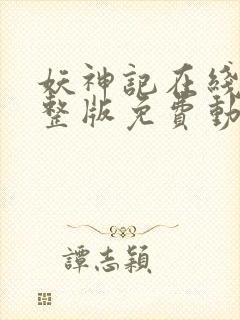 妖神記在綫
整版免費動
譚志穎